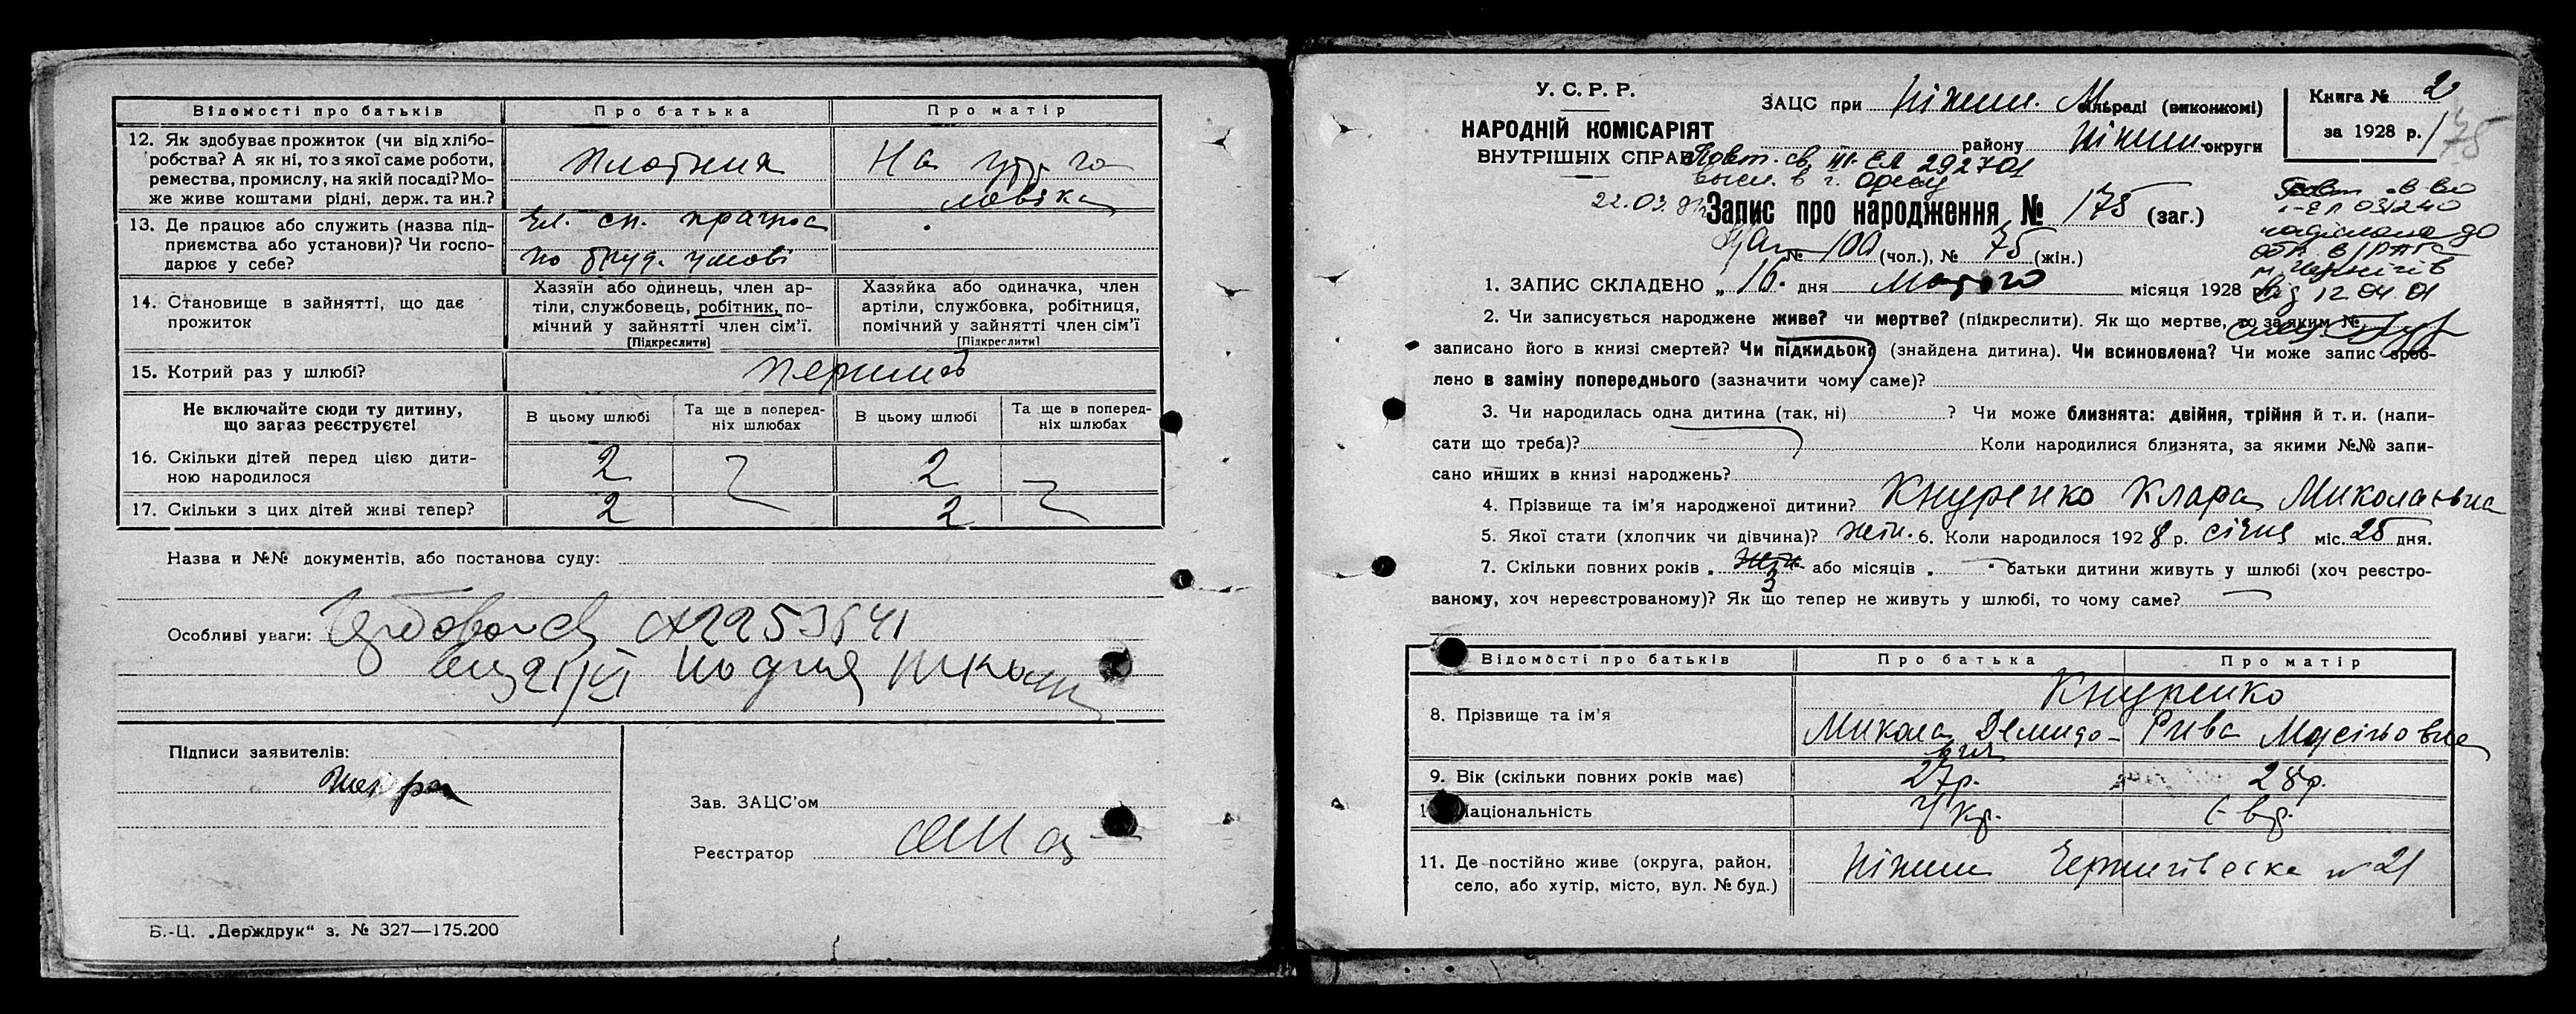 Відомості про батьків
Про батька
Про матір
12. Як здобуває прожиток (чи від хлібо-
робства? А як ні, то з якої саме роботи,
ремества, промислу, на якій посаді? Мо-
же живе коштами рідні, держ. та ин.?
На
13. Де працює або служить (назва під-
приємства або установи)? Чи госпо-
дарює у себе?
по труд. умові
14. Становище в зайнятті, що дає
прожиток
Хазяїн або одинець, член ар-
тіли, службовець, робітник, по-
мічний у зайнятті член сім'ї.
[Підкреслити]
Хазяйка або одиначка, член
артіли, службовка, робітниця,
помічний у зайнятті член сім'ї
[Підкреслити]
15. Котрий раз у шлюбі?
Не включайте сюди ту дитину,
що зараз реєструєте!
В цьому шлюбі
Та ще в поперед-
ніх шлюбах
В цьому шлюбі
Та ще в поперед-
ніх шлюбах
16. Скільки дітей перед цією дити-
ною народилося
2
2
17. Скільки з цих дітей живі тепер?
2
2
Назва и №№ документів, або постанова суду:
Особливі уваги:
Підписи заявителів:
Зав. ЗАЦС'ом
Реєстратор
Б.-Ц. „Держдрук“ з. № 327—175.200
У. С. Р. Р.
НАРОДНІЙ КОМІСАРІЯТ
ВНУТРІШНІХ СПРАВ
ЗАЦС при Ніжин. М. сільраді (виконкомі)
району Ніжин. округи
Книга № 2
за 1928 р. 175
Повт. св. III-ЕЛ 292701
22.03.
Запис про народження № 175 (заг.)
№ 100 (чол.), № 75 (жін.)
від 12 04 01
1. ЗАПИС СКЛАДЕНО „ 16. дня Лютого місяця 1928
2. Чи записується народжене живе? чи мертве? (підкреслити). Як що мертве, то за яким №
записано його в книзі смертей? Чи підкидьок? (знайдена дитина). Чи всиновлена? Чи може запис зроб-
лено в заміну попереднього (зазначити чому саме)?
3. Чи народилась одна дитина (так, ні) ? Чи може близнята: двійня, трійня й т. и. (напи-
сати що треба)? Коли народилися близнята, за якими №№ запи-
сано инших в книзі народжень?
4. Прізвище та ім'я народженої дитини? Кнуренко Клара Миколаєвна
5. Якої стати (хлопчик чи дівчина)? жін. 6. Коли народилося 1928 р. січня міс. 25 дня.
7. Скільки повних років „ 3 або місяців „ батьки дитини живуть у шлюбі (хоч реєстро-
ваному, хоч нереєстрованому)? Як що тепер не живуть у шлюбі, то чому саме?
Відомості про батьків
Про батька
Про матір
8. Прізвище та ім'я
Кнуренко
Микола Демидо-
вич
Рива Мусіновна
9. Вік (скільки повних років має)
27р.
28р.
Національність
Укр.
Євр.
11. Де постійно живе (округа, район,
село, або хутір, місто, вул. № буд.)
Ніжин Чернигівська № 21